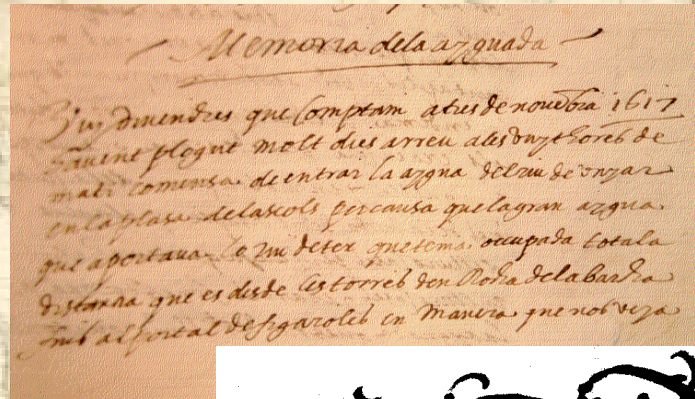 Memoria dela ayguada
Vuy divendres que Comptam a tres de novebra 1617
havent plogut molt dies arreu ales onzt hores de
mati comensa de entrar la aygua del riu de onyar
en la plasa de las cols per causa que la gran aygua
que aportava lo riu de ter que tenia occupada tota la
distancia que es desde les torres den Rocha de la barcha
fins al portal de figaroles en manera que nos veya